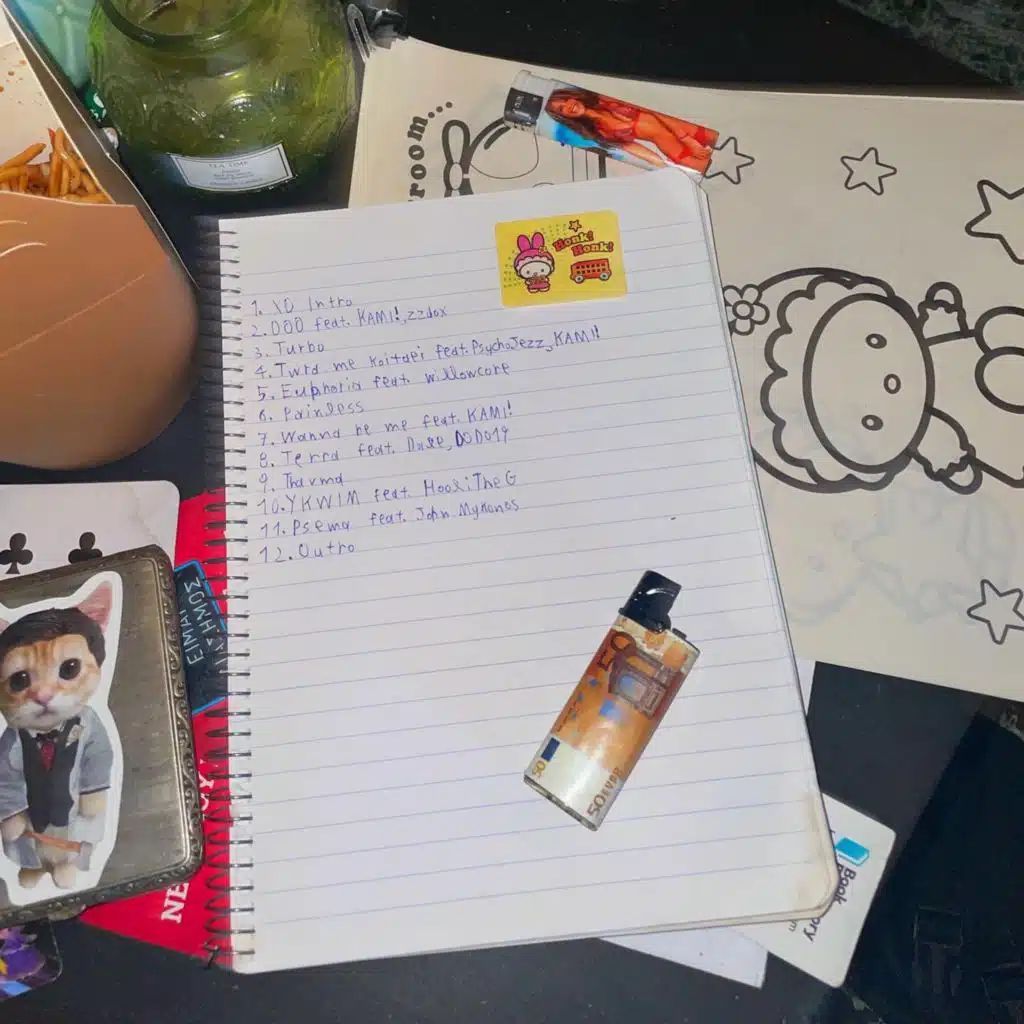 room...
TEA TIME
Honk!
Honk!
1. 10 Intro
2. DOO feat. KAMI!, zzdox
3. Turbo
4. Twra me Koitaei feat. PsychoJezz, KAMI!
5. Euphoria feat. willowcore
6. Painless
7. Wanna be me feat. KAMI!
8. Terra feat. Dare, DODO19
9. Thavma
10. YKWIM feat. HooliTheG
11. Psema feat. John Mykonos
12. Outro
ΕΙΜΑΙ
ΑΣΗΜΟΣ
50
50 EURO
Book
ory